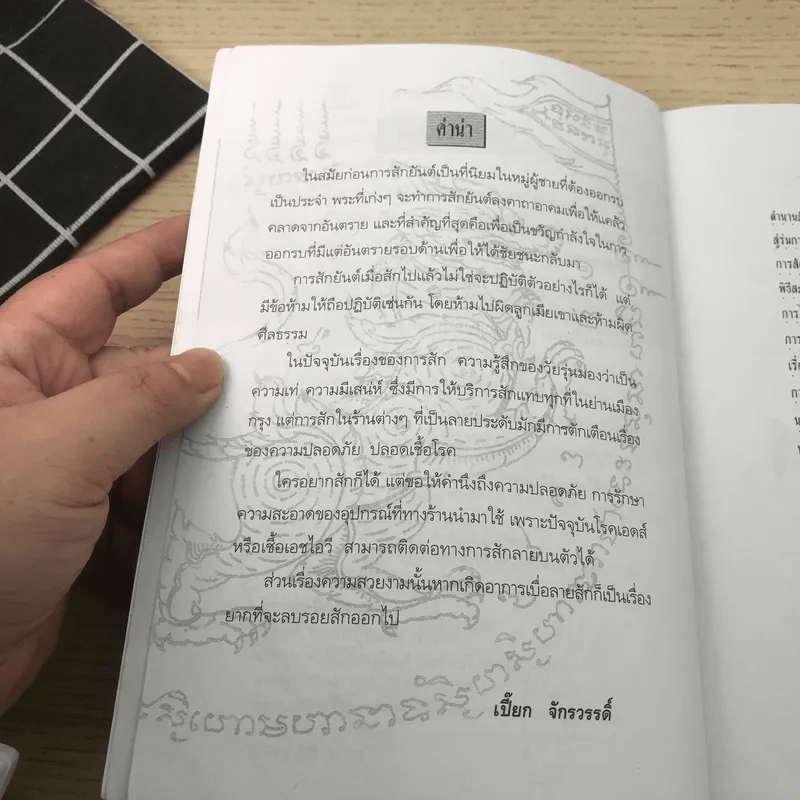 คำนำ
ในสมัยก่อนการสักยันต์เป็นที่นิยมในหมู่ผู้ชายที่ต้องออกรบ
เป็นประจำ พระที่เก่งๆ จะทำการสักยันต์ลงคาถาอาคมเพื่อให้แคล้ว
คลาดจากอันตราย และที่สำคัญที่สุดคือเพื่อเป็นขวัญกำลังใจในการ
ออกรบที่มีแต่อันตรายรอบด้านเพื่อให้ได้ชัยชนะกลับมา
การสักยันต์เมื่อสักไปแล้วไม่ใช่จะปฏิบัติตัวอย่างไรก็ได้ แต่
มีข้อห้ามให้ถือปฏิบัติเช่นกัน โดยห้ามไปผิดลูกเมียเขาและห้ามผิด
ศีลธรรม
ในปัจจุบันเรื่องของการสัก ความรู้สึกของวัยรุ่นมองว่าเป็น
ความเท่ ความมีเสน่ห์ ซึ่งมีการให้บริการสักแทบทุกที่ในย่านเมือง
กรุง แต่การสักในร้านต่างๆ ที่เป็นลายประดับมักมีการตักเตือนเรื่อง
ของความปลอดภัย ปลอดเชื้อโรค
ใครอยากสักก็ได้ แต่ขอให้คำนึงถึงความปลอดภัย การรักษา
ความสะอาดของอุปกรณ์ที่ทางร้านนำมาใช้ เพราะปัจจุบันโรคเอดส์
หรือเชื้อเอชไอวี สามารถติดต่อทางการสักลายบนตัวได้
ส่วนเรื่องความสวยงามนั้นหากเกิดอาการเบื่อลายสักก็เป็นเรื่อง
ยากที่จะลบรอยสักออกไป
เปี๊ยก จักรวรรดิ์